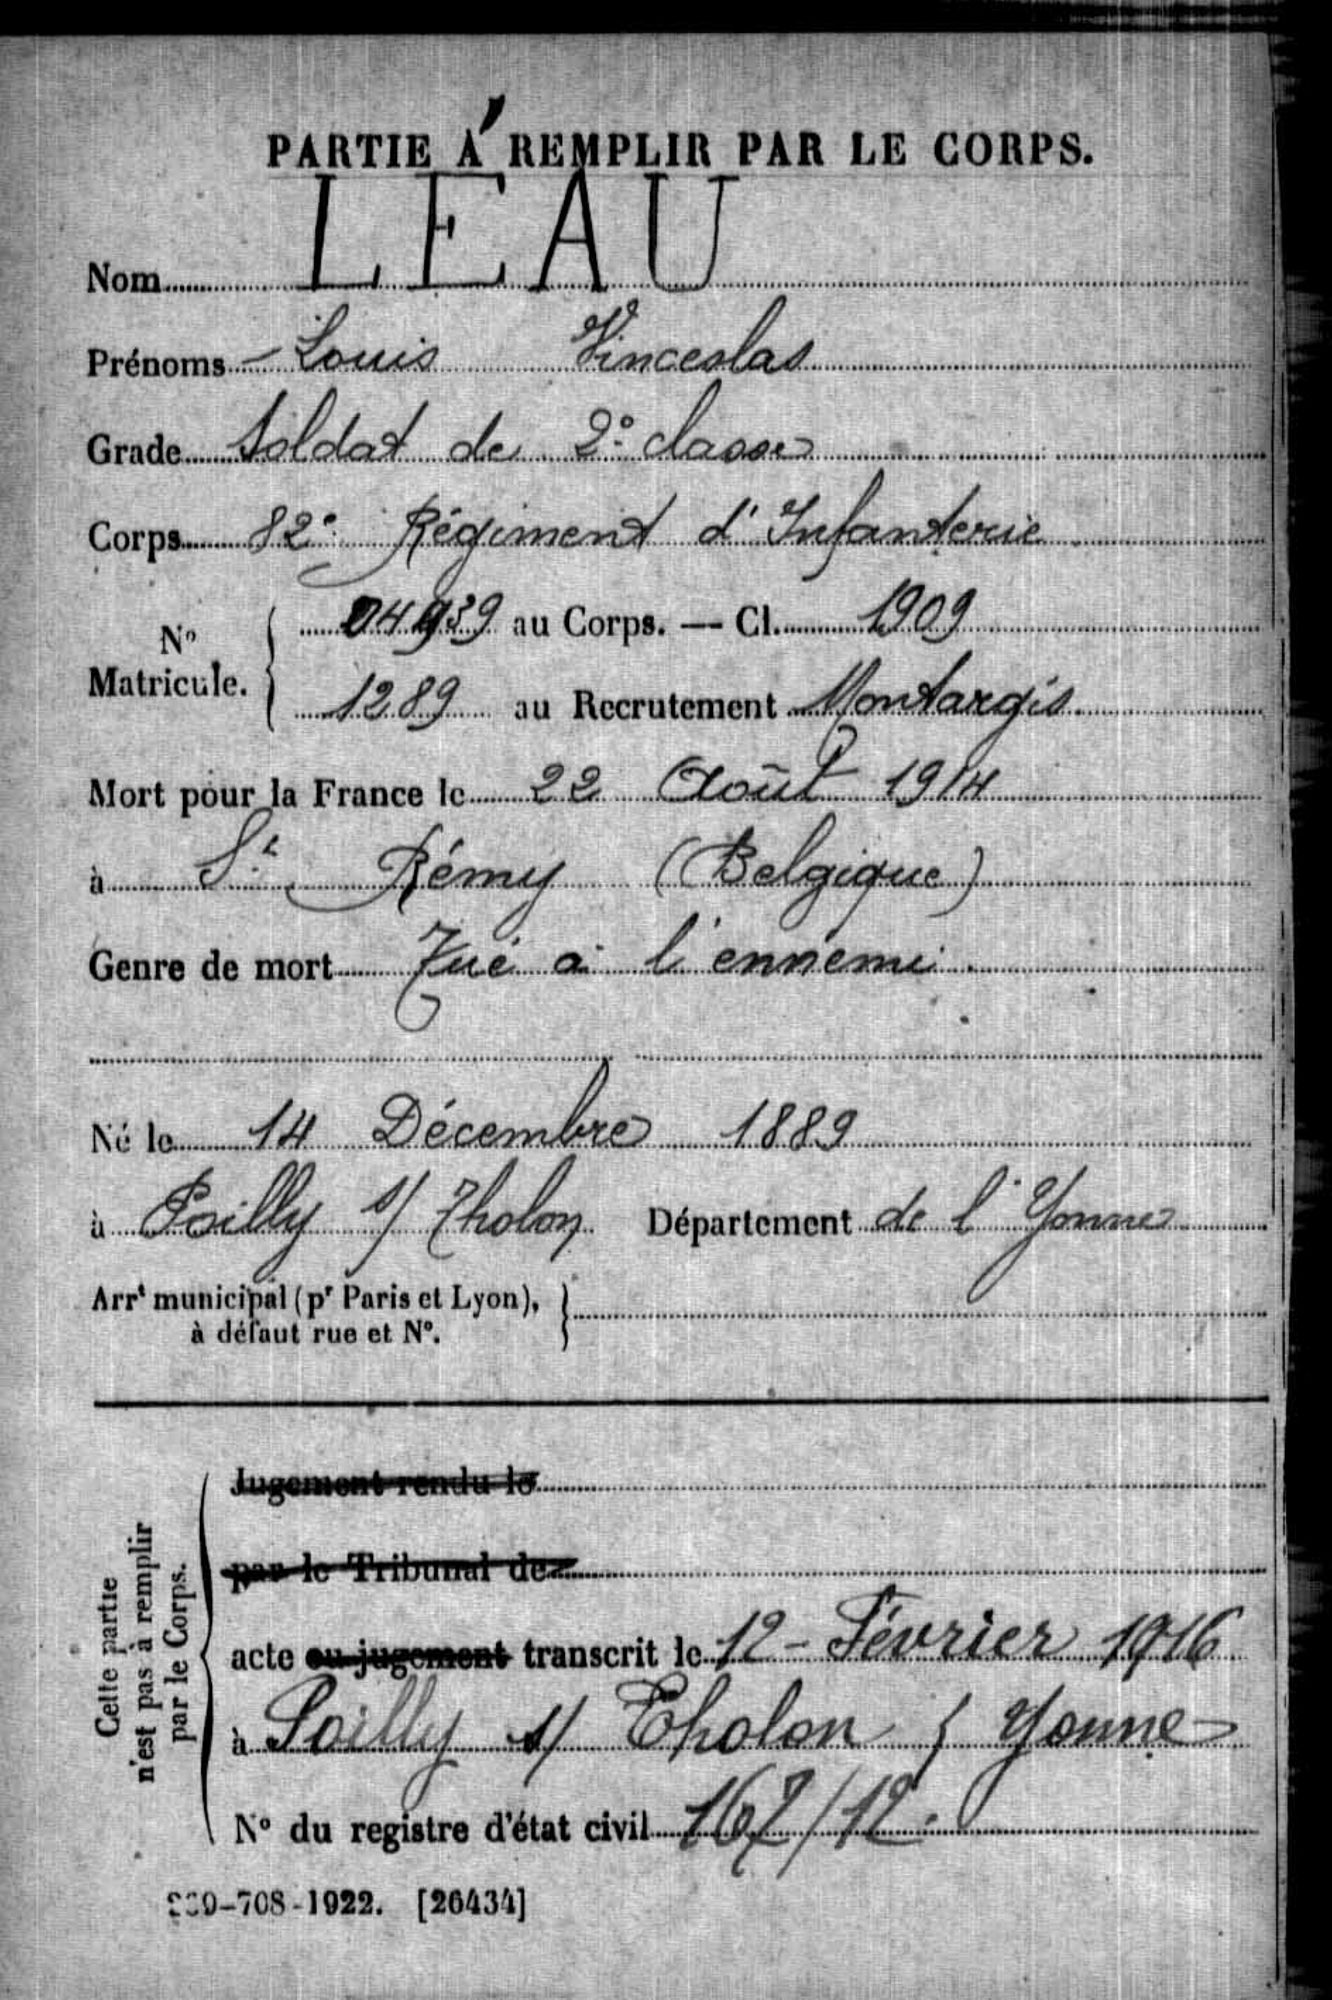 PARTIE À REMPLIR PAR LE CORPS.
Nom LEAU
Prénoms Louis Vinceslas
Grade Soldat de 2e classe
Corps 82e Régiment d'Infanterie
N° Matricule. 04939 au Corps. — Cl. 1909
1289 au Recrutement Montargis
Mort pour la France le 22 Août 1914
à St Rémy (Belgique)
Genre de mort Tué à l'ennemi
Né le 14 Décembre 1889
à Poilly s/ Tholon Département de l'Yonne
Arrt municipal (pr Paris et Lyon),
à défaut rue et N°.
Cette partie
n'est pas à remplir
par le Corps.
Jugement rendu le
par le Tribunal de
acte ou jugement transcrit le 12 - Février 1916
à Poilly s/ Tholon Yonne
N° du registre d'état civil 167/12.
-708-1922. [26434]